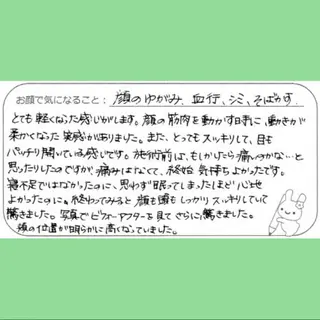 お顔で気になること： 顔のゆがみ、血行、シミ、そばかす
とても軽くなった感じがします。顔の筋肉を動かす時に、動きが
柔かくなった実感がありました。また、とってもスッキリして、目も
パッチリ開いている感じです。施術前は、もしかしたら痛いのかな…と
思ったりしたのですが、痛みはなくて、終始気持ちよかったです。
寝不足ではなかったのに、思わず眠ってしまったほど心地
よかったのに。終わってみると顔も頭もしっかりスッキリしていて
驚きました。写真でビフォーアフターを見てさらに驚きました。
頬の位置が明らかに高くなっていました。